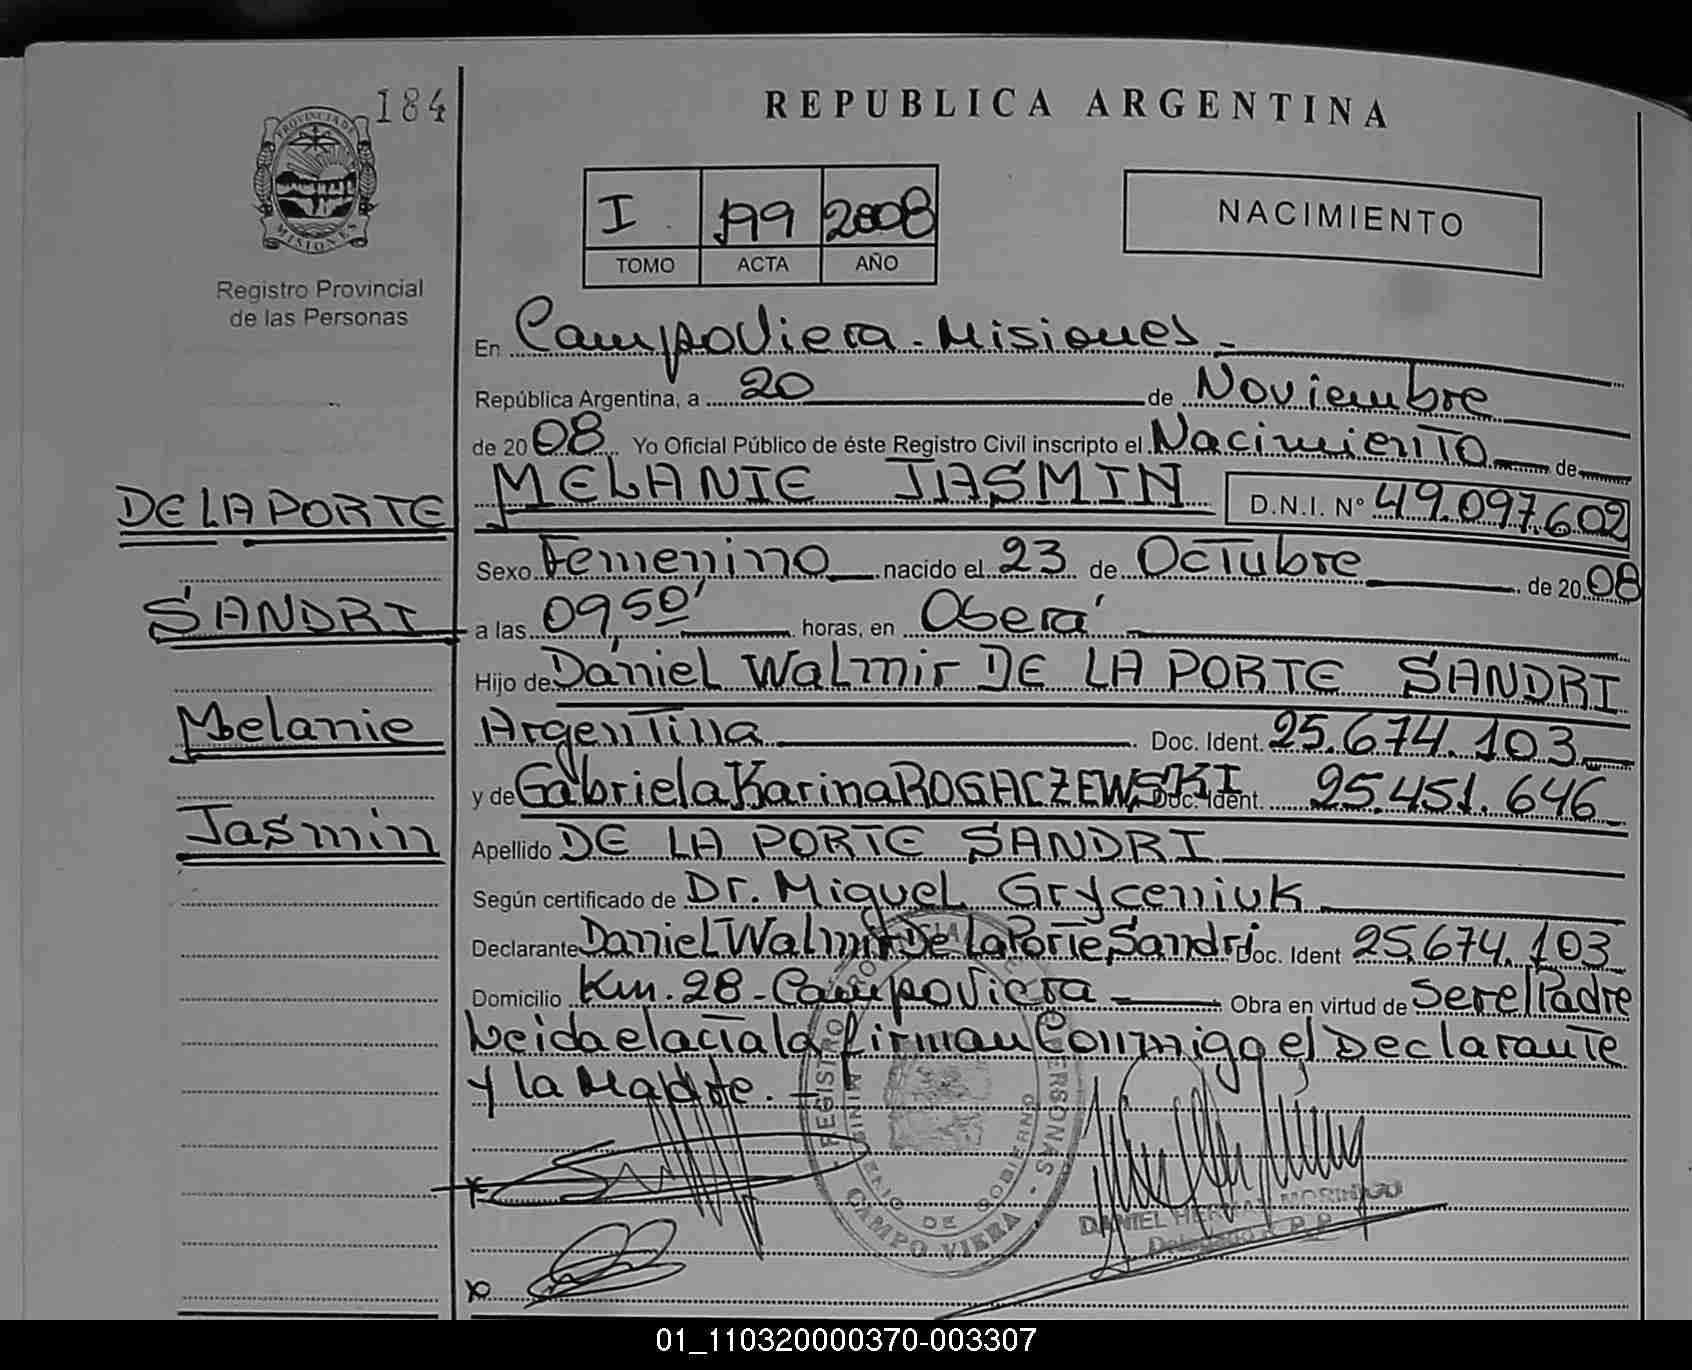 184
PROVINCIA DE
MISIONES
Registro Provincial
de las Personas
REPUBLICA ARGENTINA
I 199 2008
TOMO ACTA AÑO
NACIMIENTO
En Campo Viera - Misiones -
República Argentina, a 20 de Noviembre
de 2008 Yo Oficial Público de éste Registro Civil inscripto el Nacimiento de
DE LA PORTE
MELANIE JASMIN D.N.I. Nº 49.097.602
Sexo Femenino nacido el 23 de Octubre de 2008
SANDRI
a las 09,50' horas, en Oberá
Hijo de Daniel Walmir DE LA PORTE SANDRI
Melanie
Argentina Doc. Ident. 25.674.103
y de Gabriela Karina ROGACZEWSKI Doc. Ident. 25.451.646
Jasmin
Apellido DE LA PORTE SANDRI
Según certificado de Dr. Miguel Gryceniuk
Declarante Daniel Walmir De La Porte Sandri Doc. Ident 25.674.103
Domicilio Km. 28 - Campo Viera Obra en virtud de Ser el Padre
Leida el acta la firman Conmigo el Declarante
y la Madre. -
REGISTRO PERSONAS
DE GOBIERNO
CAMPO VIERA
DANIEL HERNAN MORINIGO
Delegado R. P. P.
01_110320000370-003307